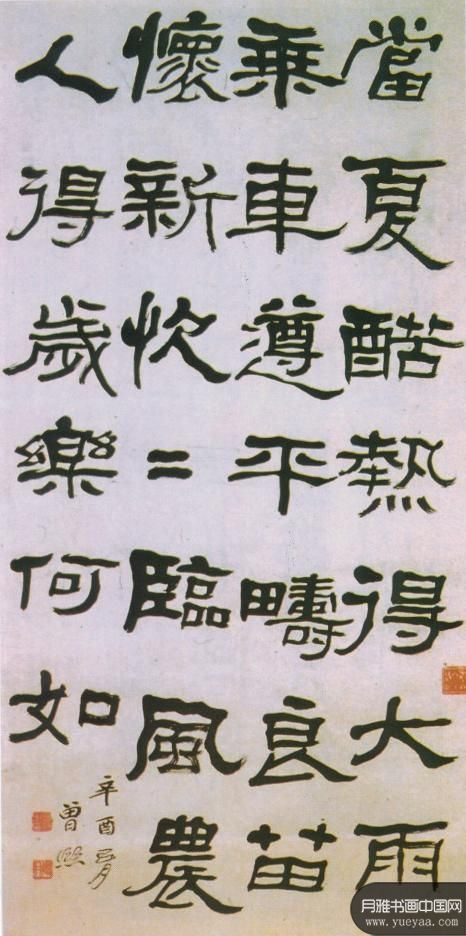 當夏酷熱得大雨
乘車遵平疇良苗
懷新忺=臨風農
人得歲樂何如
辛酉
曾熙
月雅书画中国网
www.yueyaa.com